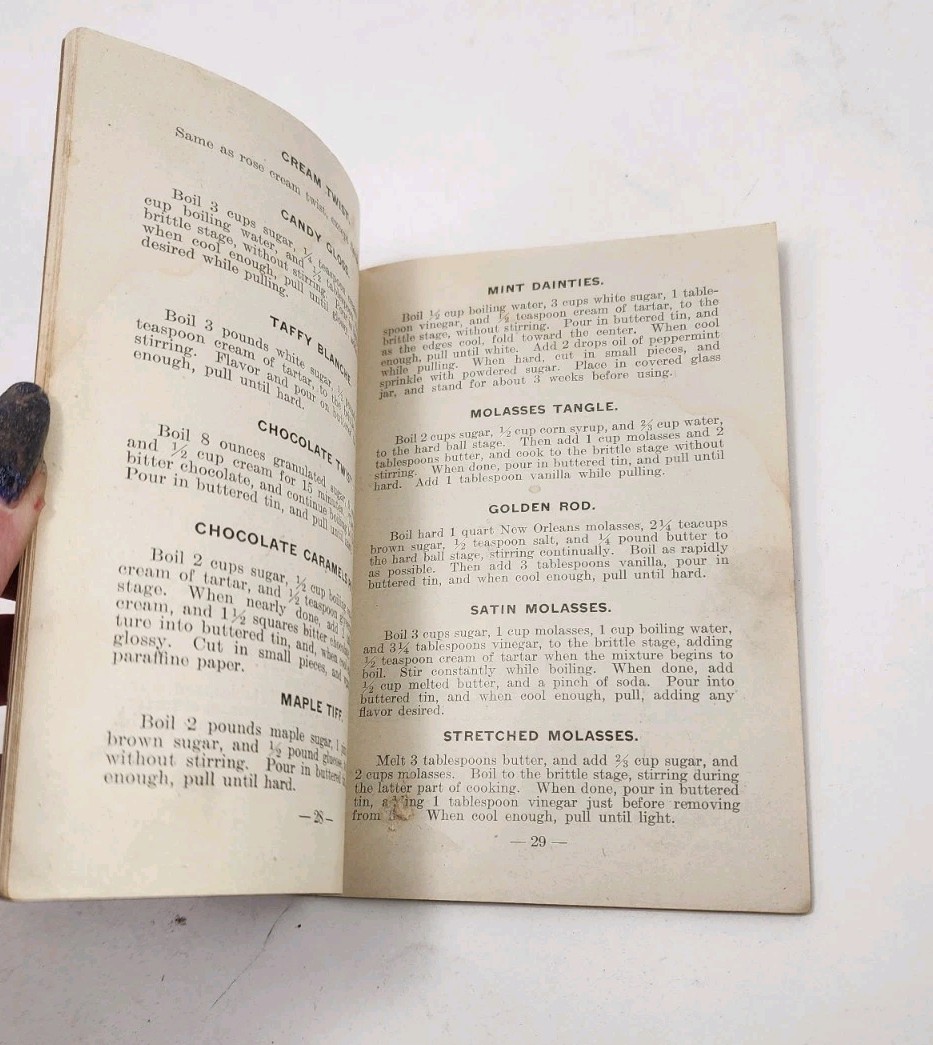 CREAM TWIST.
Same as rose cream twist,
CANDY GLOSS.
Boil 3 cups sugar, ¼
cup boiling water, and ½
brittle stage, without stirring.
when cool enough, pull until
desired while pulling.
TAFFY BLANCHE.
Boil 3 pounds white sugar,
teaspoon cream of tartar, to the
stirring. Flavor and pour on
enough, pull until hard.
CHOCOLATE
Boil 8 ounces granulated sugar,
and ½ cup cream for 15
bitter chocolate, and continue boiling
Pour in buttered tin, and pull until
CHOCOLATE CARAMELS
Boil 2 cups sugar, ½ cup boiling
cream of tartar, and ½ teaspoon
stage. When nearly done, add
cream, and 1½ squares bitter
ture into buttered tin, and, when
glossy. Cut in small pieces, and
paraffine paper.
MAPLE TIFF.
Boil 2 pounds maple sugar, 1
brown sugar, and ½ pound glucose,
without stirring. Pour in buttered
enough, pull until hard.
—28—
MINT DAINTIES.
Boil ½ cup boiling water, 3 cups white sugar, 1 table-
spoon vinegar, and teaspoon cream of tartar, to the
brittle stage, without stirring. Pour in buttered tin, and
as the edges cool, fold toward the center. When cool
enough, pull until white. Add 2 drops oil of peppermint
while pulling. When hard, cut in small pieces, and
sprinkle with powdered sugar. Place in covered glass
jar, and stand for about 3 weeks before using.
MOLASSES TANGLE.
Boil 2 cups sugar, ½ cup corn syrup, and ⅔ cup water,
to the hard ball stage. Then add 1 cup molasses and 2
tablespoons butter, and cook to the brittle stage without
stirring. When done, pour in buttered tin, and pull until
hard. Add 1 tablespoon vanilla while pulling.
GOLDEN ROD.
Boil hard 1 quart New Orleans molasses, 2¼ teacups
brown sugar, ½ teaspoon salt, and ¼ pound butter to
the hard ball stage, stirring continually. Boil as rapidly
as possible. Then add 3 tablespoons vanilla, pour in
buttered tin, and when cool enough, pull until hard.
SATIN MOLASSES.
Boil 3 cups sugar, 1 cup molasses, 1 cup boiling water,
and 3¼ tablespoons vinegar, to the brittle stage, adding
½ teaspoon cream of tartar when the mixture begins to
boil. Stir constantly while boiling. When done, add
½ cup melted butter, and a pinch of soda. Pour into
buttered tin, and when cool enough, pull, adding any
flavor desired.
STRETCHED MOLASSES.
Melt 3 tablespoons butter, and add ⅔ cup sugar, and
2 cups molasses. Boil to the brittle stage, stirring during
the latter part of cooking. When done, pour in buttered
tin, adding 1 tablespoon vinegar just before removing
from When cool enough, pull until light.
— 29 —